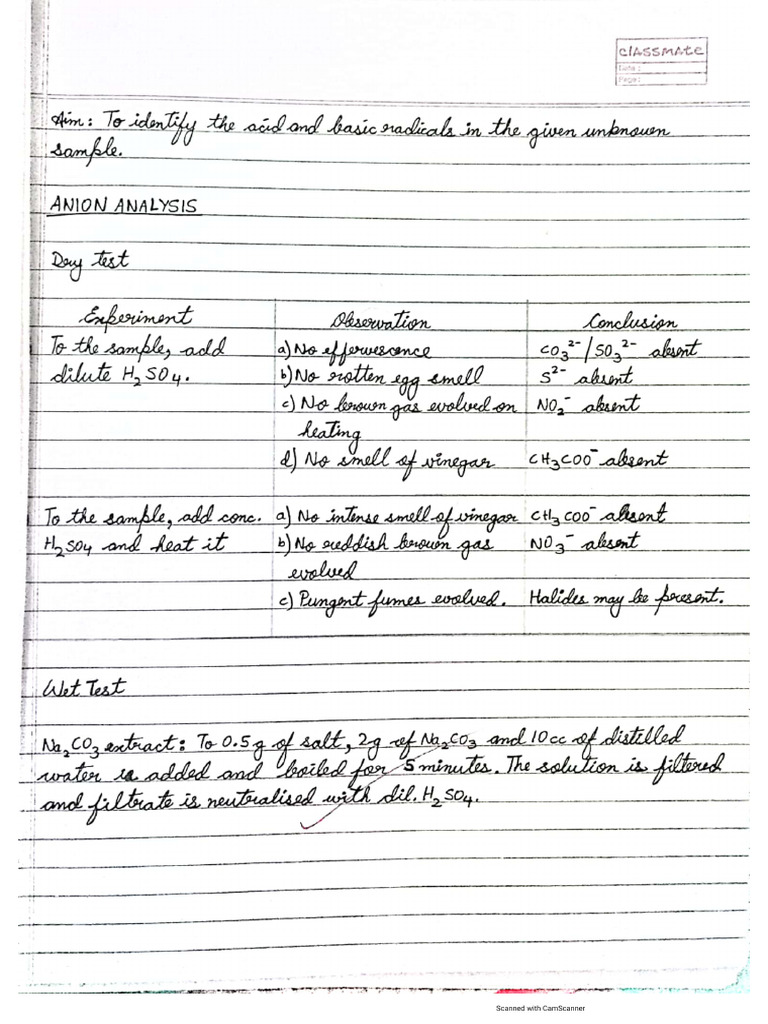 classmate
Date:
Page:
Aim: To identify the acid and basic radicals in the given unknown
sample.
ANION ANALYSIS
Dry test
Experiment Observation Conclusion
To the sample, add a) No effervescence CO₃²⁻/SO₃²⁻ absent
dilute H₂SO₄. b) No rotten egg smell S²⁻ absent
c) No brown gas evolved on NO₂⁻ absent
heating
d) No smell of vinegar CH₃COO⁻ absent
To the sample, add conc. a) No intense smell of vinegar CH₃COO⁻ absent
H₂SO₄ and heat it b) No reddish brown gas NO₃⁻ absent
evolved
c) Pungent fumes evolved. Halides may be present.
Wet Test
Na₂CO₃ extract: To 0.5g of salt, 2g of Na₂CO₃ and 10cc of distilled
water is added and boiled for 5 minutes. The solution is filtered
and filtrate is neutralised with dil. H₂SO₄.
Scanned with CamScanner